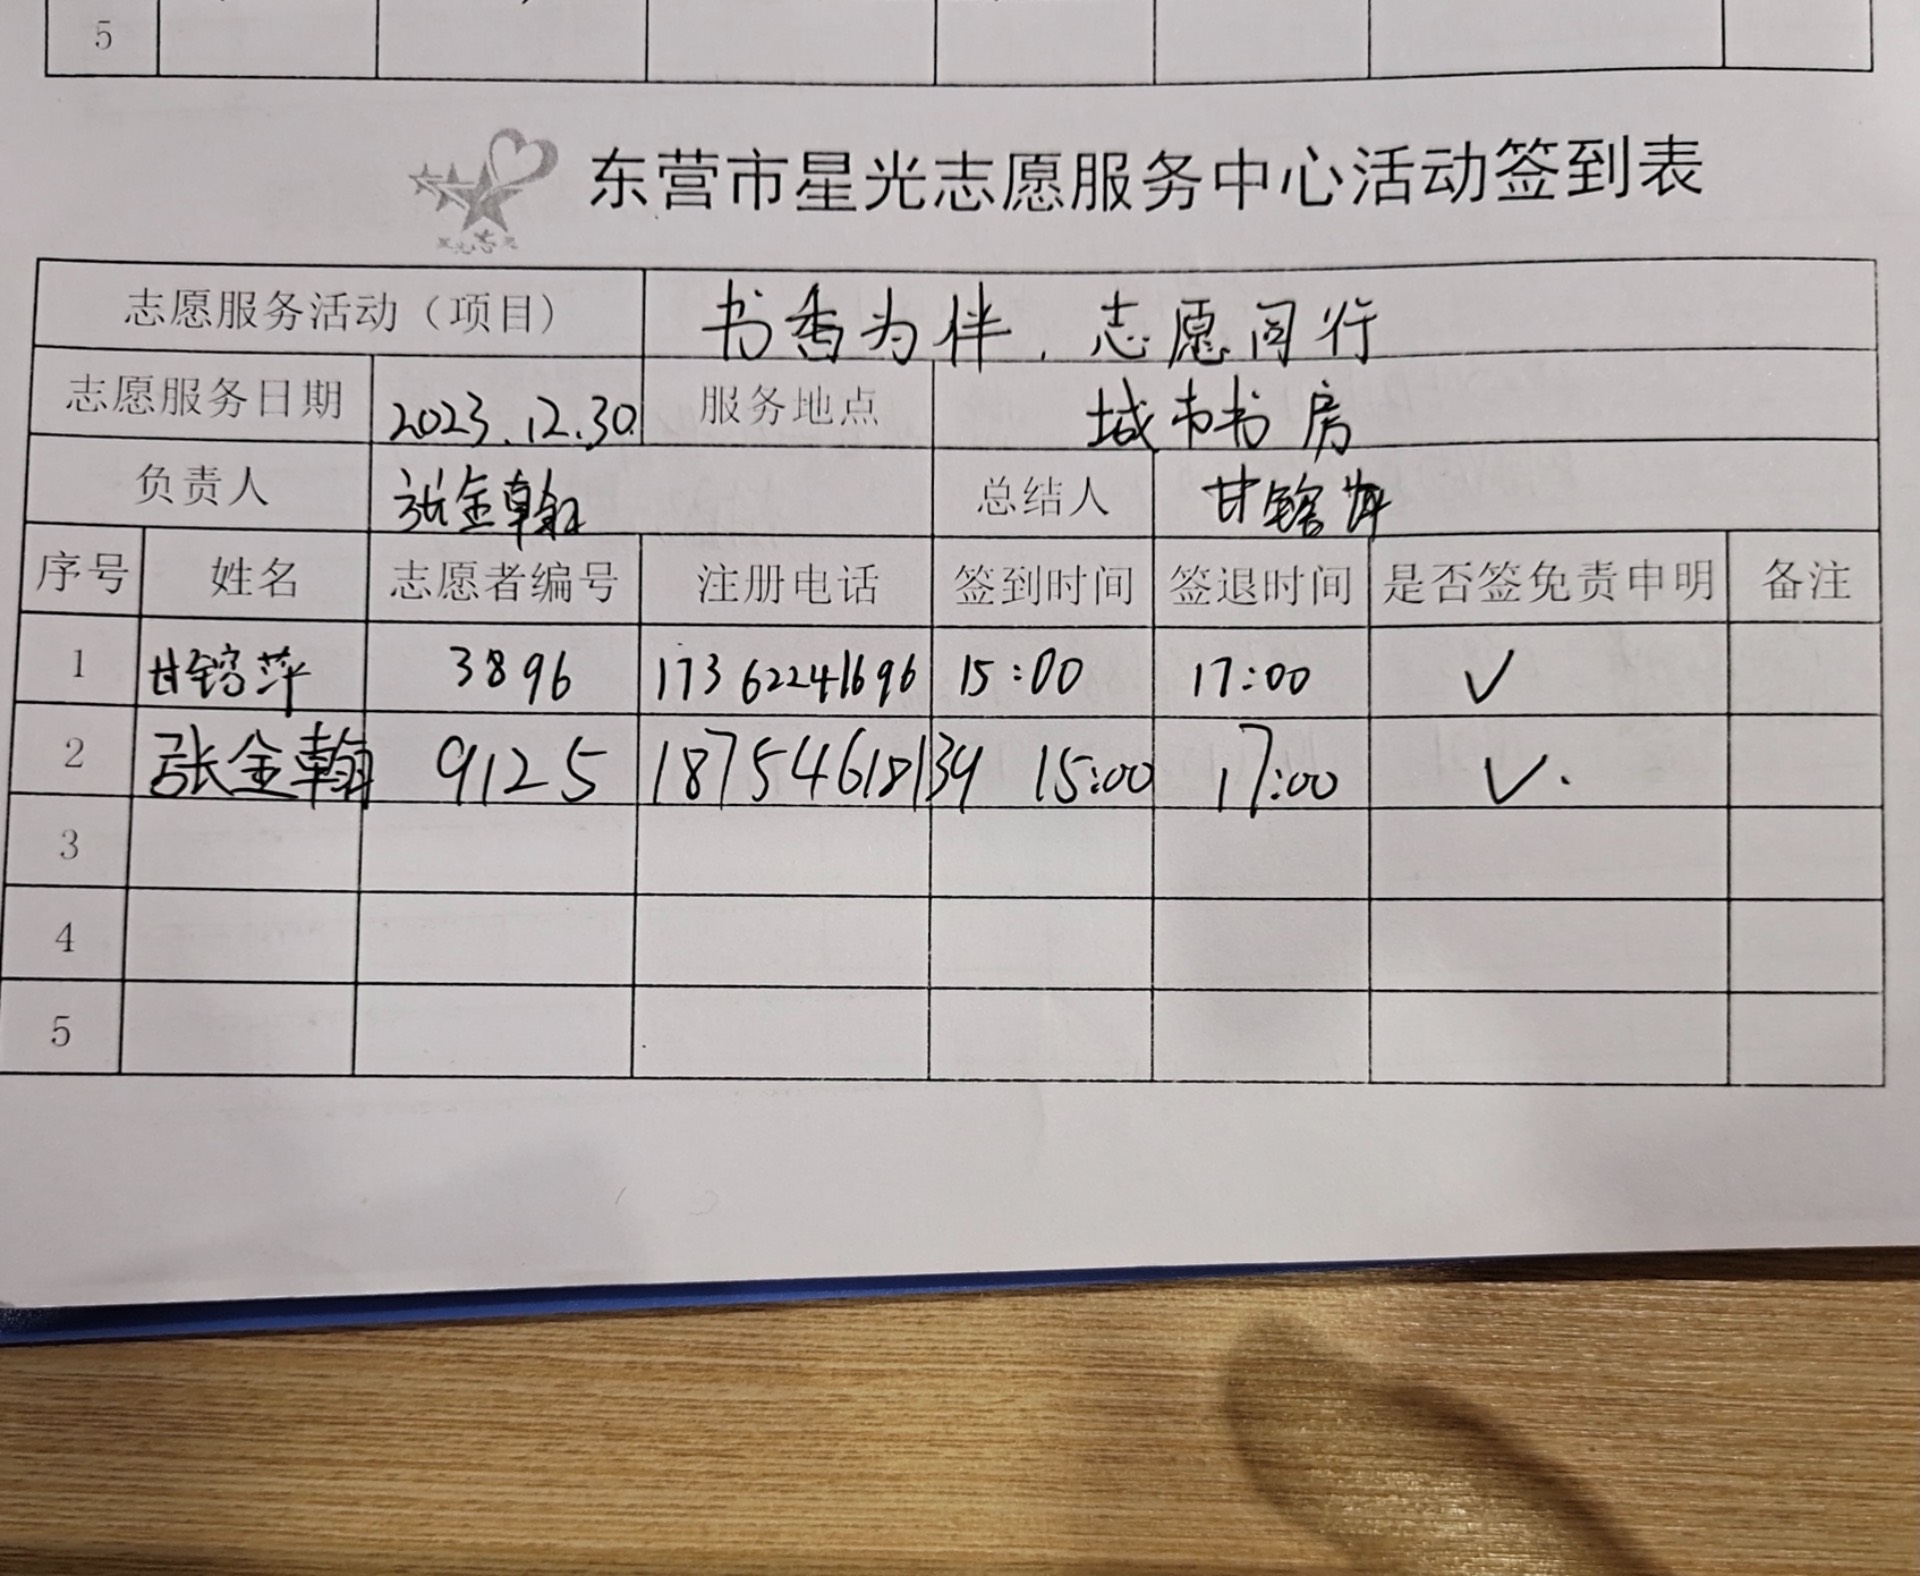 5
东营市星光志愿服务中心活动签到表
志愿服务活动（项目） 书香为伴，志愿同行
志愿服务日期 2023.12.30 服务地点 城市书房
负责人 张金翰 总结人 甘
序号 姓名 志愿者编号 注册电话 签到时间 签退时间 是否签免责申明 备注
1 甘 萍 3896 17362241696 15:00 17:00 ✓
2 张金翰 9125 18754618139 15:00 17:00 ✓.
3
4
5